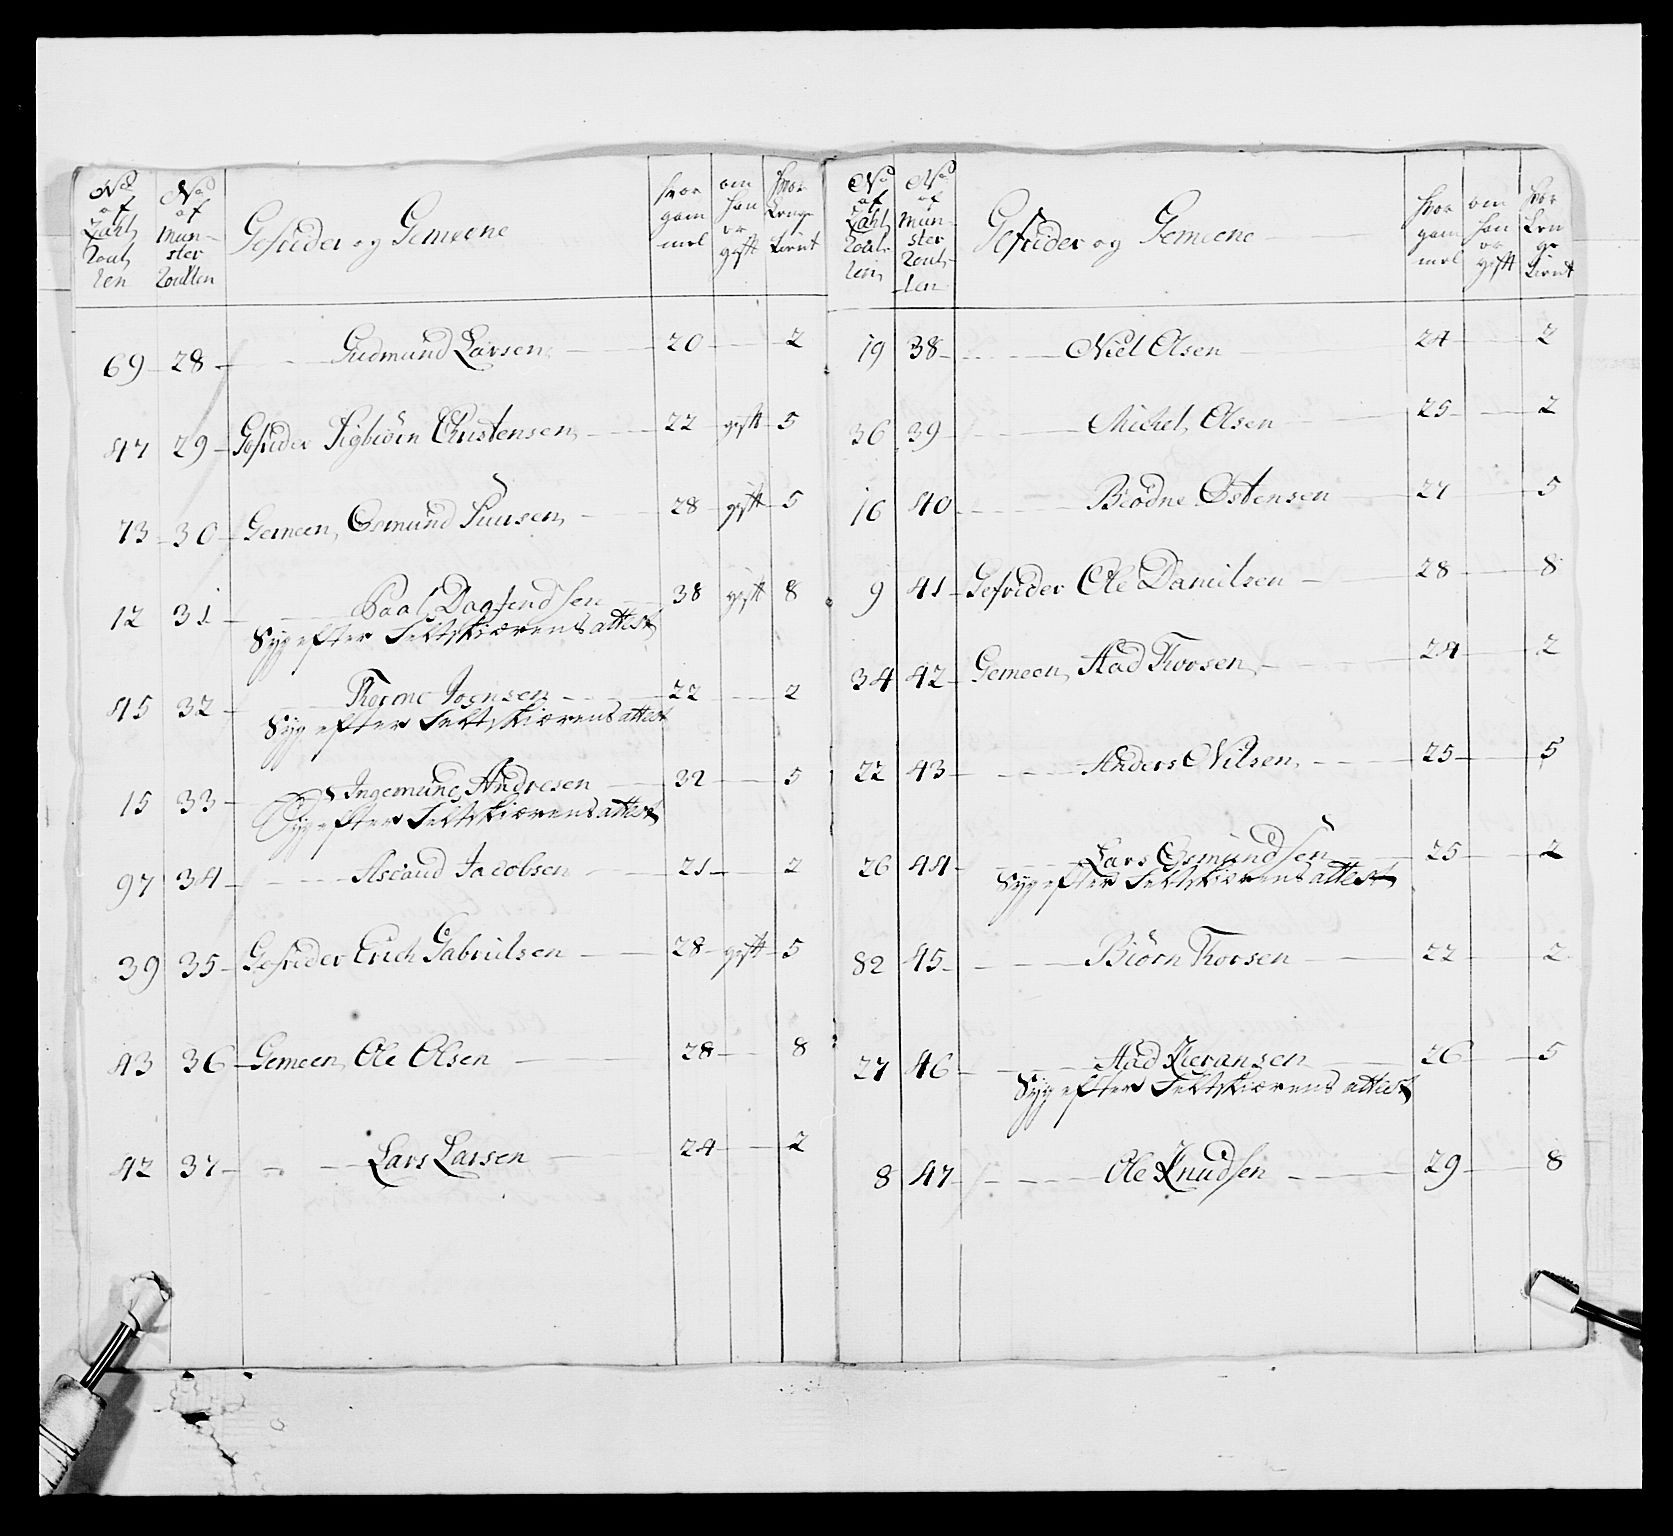 No af Zahl Roul len | No af Mun- ster Roullen | Gefrider og Gemeene | hvor gam mel | om han er gift | hvor Lenge tient
69 - 28 - Gudmund Larsen - 20 - 2
47 29 - Gefrider Sigbiörn Christensen - 22 - gift - 5
73 - 30 - Gemeen, Osmund Siursen, - 28 - gift - 5
12 31 - Paal Dagfendsen 38 gift 8
Syg efter Feltskiærens attest
45 32 - Thorme Joensen - 22 - 2
Syg efter Feltskiærens attest
15 33 - Ingemund Andresen - 32 - 5
Syg efter Feltskiærens attest
97 34 - Aslaud Jacobsen - 21 - 2
39 35 - Gefrider Erich Gabrielsen - 28 - gift - 5
43 36 - Gemeen, Ole Olsen - 28 - 8
42 37 - Lars Larsen - 24 - 2
No af Zahl Roul- len | No af Mun- ster Roul- len | Gefrider og Gemeene | hvor gam mel | om han er gift | hvor Len ge tient
19 38 - Niel Olsen - 24 - 2
36 39 - Michel Olsen - 25 - 2
16 40 - Biodne Östensen - 27 - 5
9 41 - Gefrider Ole Danielsen - 28 - 8
34 42 - Gemeen, Aad Thorsen, - 24 - 2
22 43 - Anders Nilsen, - 25 - 5
26 44 - Lars Osmundsen - 25 - 2
Syg efter Feltskiærens attest
82 45 - Biörn Thorsen - 22 - 2
27 46 - Aad - 26 - 5
Syg efter Feltskiærens attest
8 47 - Ole Knudsen - 29 - 8